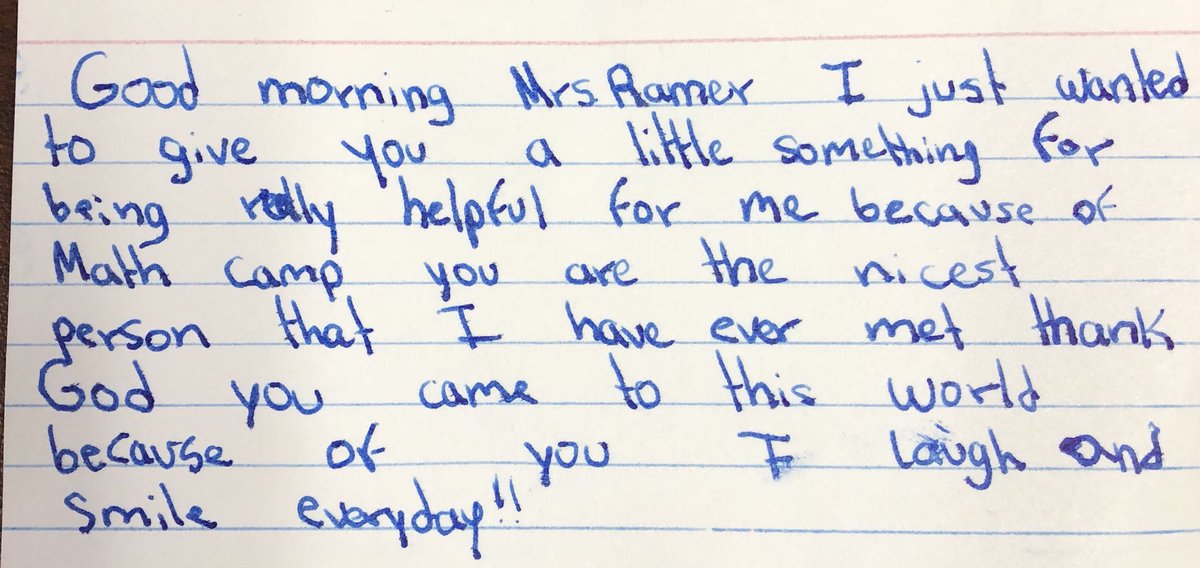 Good morning Mrs Ramer I just wanted
to give you a little something for
being really helpful for me because of
Math camp you are the nicest
person that I have ever met thank
God you came to this world
because of you I laugh and
smile everyday!!